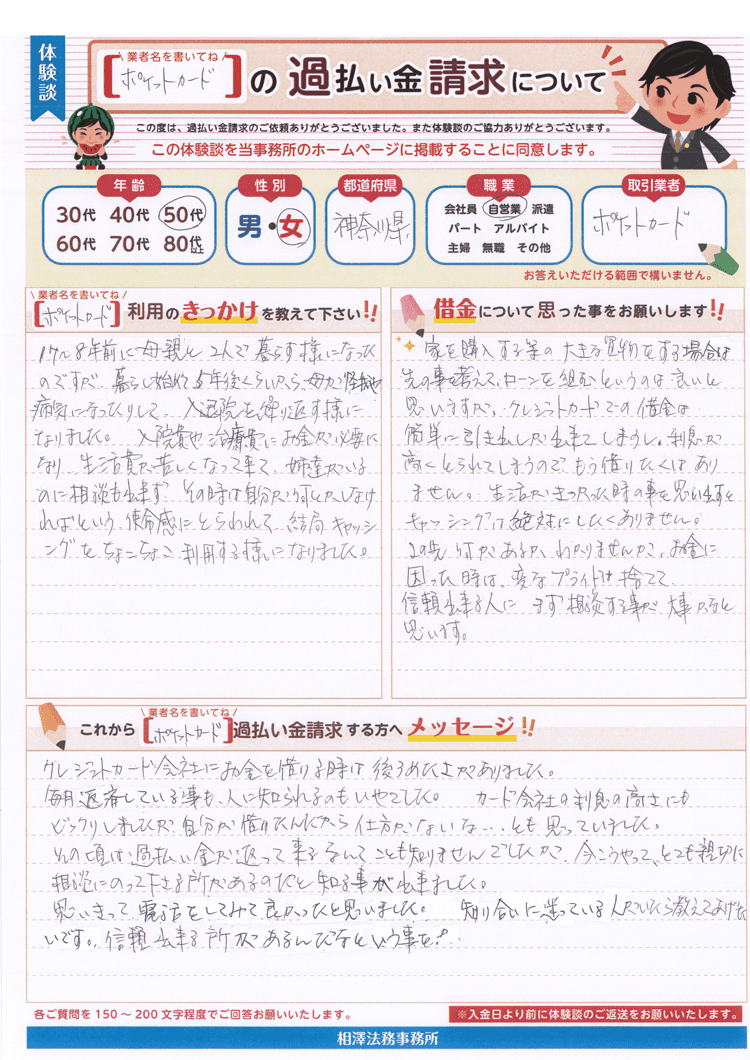 体験談
業者名を書いてね
[ポケットカード]の過払い金請求について
この度は、過払い金請求のご依頼ありがとうございました。また体験談のご協力ありがとうございます。
この体験談を当事務所のホームページに掲載することに同意します。
年齢
30代 40代 50代
60代 70代 80代以上
性別
男・女
都道府県
神奈川県
職業
会社員 自営業 派遣
パート アルバイト
主婦 無職 その他
取引業者
ポケットカード
お答えいただける範囲で構いません。
業者名を書いてね
[ポケットカード]利用のきっかけを教えて下さい!!
17〜8年前に母親と2人で暮らす様になった
のですが、暮らし始めて5年後くらいから、母が怪我や
病気になったりして、入退院を繰り返す様に
なりました。 入院費や治療費にお金が必要に
なり 生活費が苦しくなって来て、姉達がいる
のに相談も出来ず その時は自分が何とかしなけ
ればという、使命感にとらわれて、結局、キャッシ
ングをちょこちょこ利用する様になりました。
借金について思った事をお願いします!!
家を購入する等の大きな買物をする場合は
先の事を考えて、ローンを組むというのは良いと
思いますが、クレジットカードでの借金は
簡単に引き出しが出来てしまうし、利息が
高くとられてしまうので、もう借りたくはあり
ません。 生活がきつかった時の事を思い出すと
キャッシングは絶対にしたくありません。
この先 何があるか、わかりませんが、お金に
困った時は、変なプライドは捨てて、
信頼出来る人に まず相談する事が大事かなと
思います。
業者名を書いてね
これから[ポケットカード]過払い金請求する方へメッセージ!!
クレジットカード会社にお金を借りる時は後ろめたさがありました。
毎月返済している事も、人に知られるのもいやでした。 カード会社の利息の高さにも
ビックリしましたが、自分が借りたんだから仕方がないな...とも思っていました。
その頃は過払い金が返って来るなんてことも知りませんでしたが、今こうやって、とても親切に
相談にのって下さる所があるのだと知る事が出来ました。
思いきって、電話をしてみて良かったと思いました。 知り合いに迷っている人がいたら教えてあげた
いです。信頼出来る所があるんだなという事を!
各ご質問を150〜200文字程度でご回答お願いいたします。
※入金日より前に体験談のご返送をお願いいたします。
相澤法務事務所